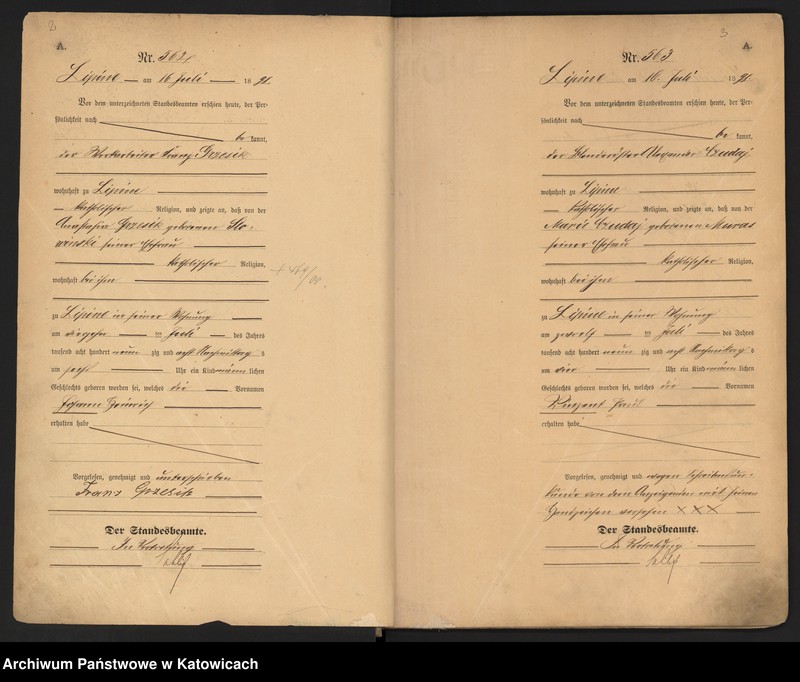 2
A.
Nr. 562
Lipine am 16 Juli 18
Vor dem unterzeichneten Standesbeamten erschien heute, der Per-
sönlichkeit nach
be kannt,
der Franz Grzesik
wohnhaft zu Lipine
katholischer Religion, und zeigte an, daß von der
Anastasia Grzesik geborenen Slo-
winski seiner Ehefrau
katholischer Religion,
wohnhaft bei ihm
zu Lipine in seiner Wohnung
am vierzehn ten Juli des Jahres
tausend acht hundert neun zig und acht Nachmittags
um sechs Uhr ein Kind männ lichen
Geschlechts geboren worden sei, welches die Vornamen
Johann Heinrich
erhalten habe
Vorgelesen, genehmigt und unterschrieben
Franz Grzesik
Der Standesbeamte.
In Vertretung
3
A.
Nr. 563
Lipine am 16. Juli 18
Vor dem unterzeichneten Standesbeamten erschien heute, der Per-
sönlichkeit nach
be kannt,
der Czudaj
wohnhaft zu Lipine
katholischer Religion, und zeigte an, daß von der
Marie Czudaj geborenen Muras
seiner Ehefrau
katholischer Religion,
wohnhaft bei ihm
zu Lipine in seiner Wohnung
am zwölf ten Juli des Jahres
tausend acht hundert neun zig und acht Nachmittags
um vier Uhr ein Kind männ lichen
Geschlechts geboren worden sei, welches die Vornamen
Vinzent Paul
erhalten habe
Vorgelesen, genehmigt und wegen Schreibensun-
kunde von dem Anzeigenden mit seinem
Handzeichen versehen XXX
Der Standesbeamte.
In Vertretung
Archiwum Państwowe w Katowicach